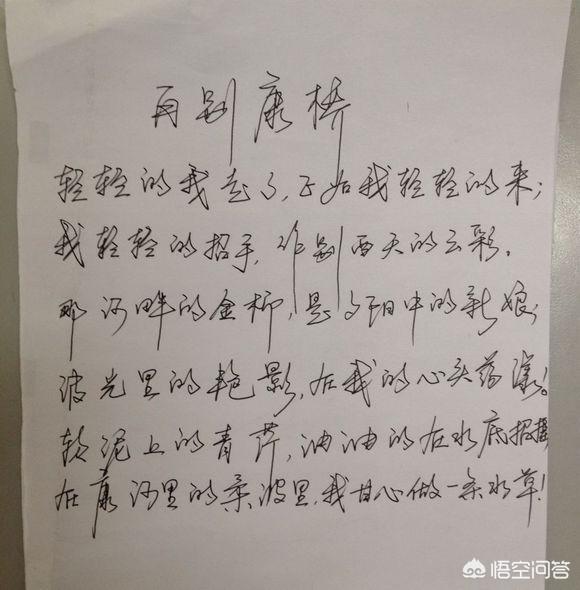 再别康桥
轻轻的我走了，正如我轻轻的来；
我轻轻的招手，作别西天的云彩。
那河畔的金柳，是夕阳中的新娘；
波光里的艳影，在我的心头荡漾！
软泥上的青荇，油油的在水底招摇
在康河里的柔波里，我甘心做一条水草！
悟空问答